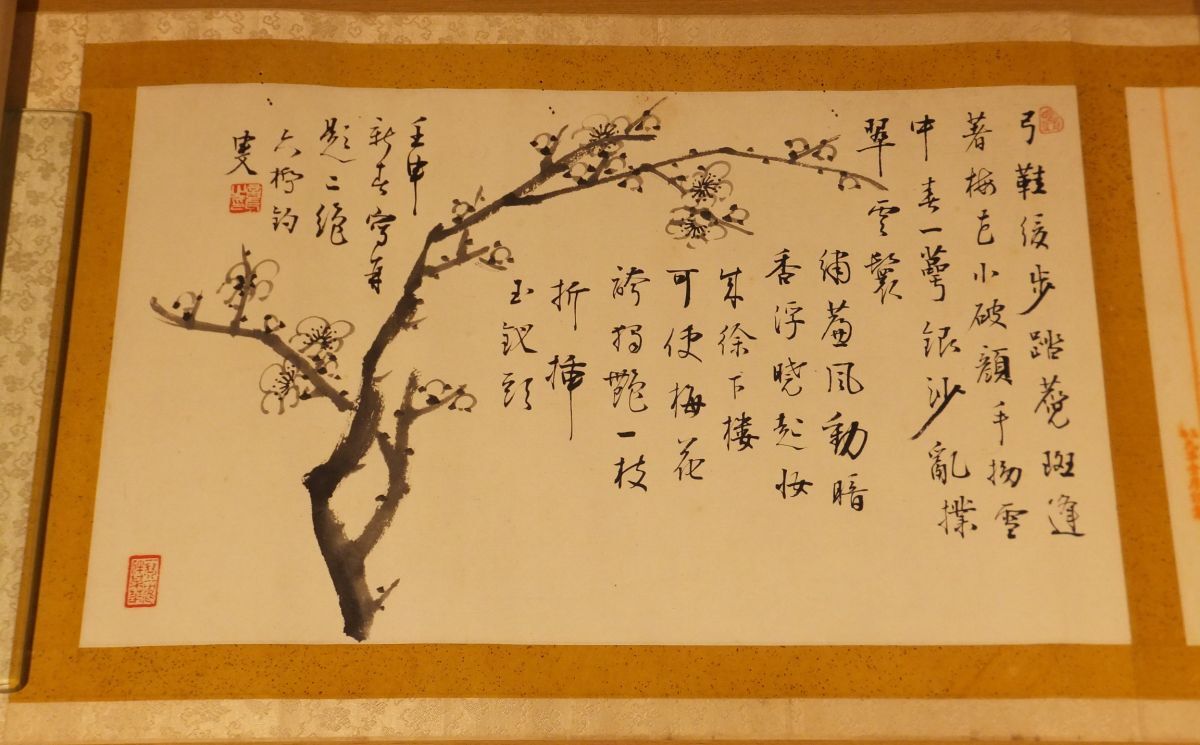 弓鞋緩步踏蒼斑逢
著梅花小破顏手拗雪
中春一萼銀沙亂撲
翠雲鬟
繡簾風動暗
香浮曉起妝
成徐下樓
可使梅花
誇獨艷一枝
折插
玉釵頭
壬申
新春寫并
題二絕
六
叟